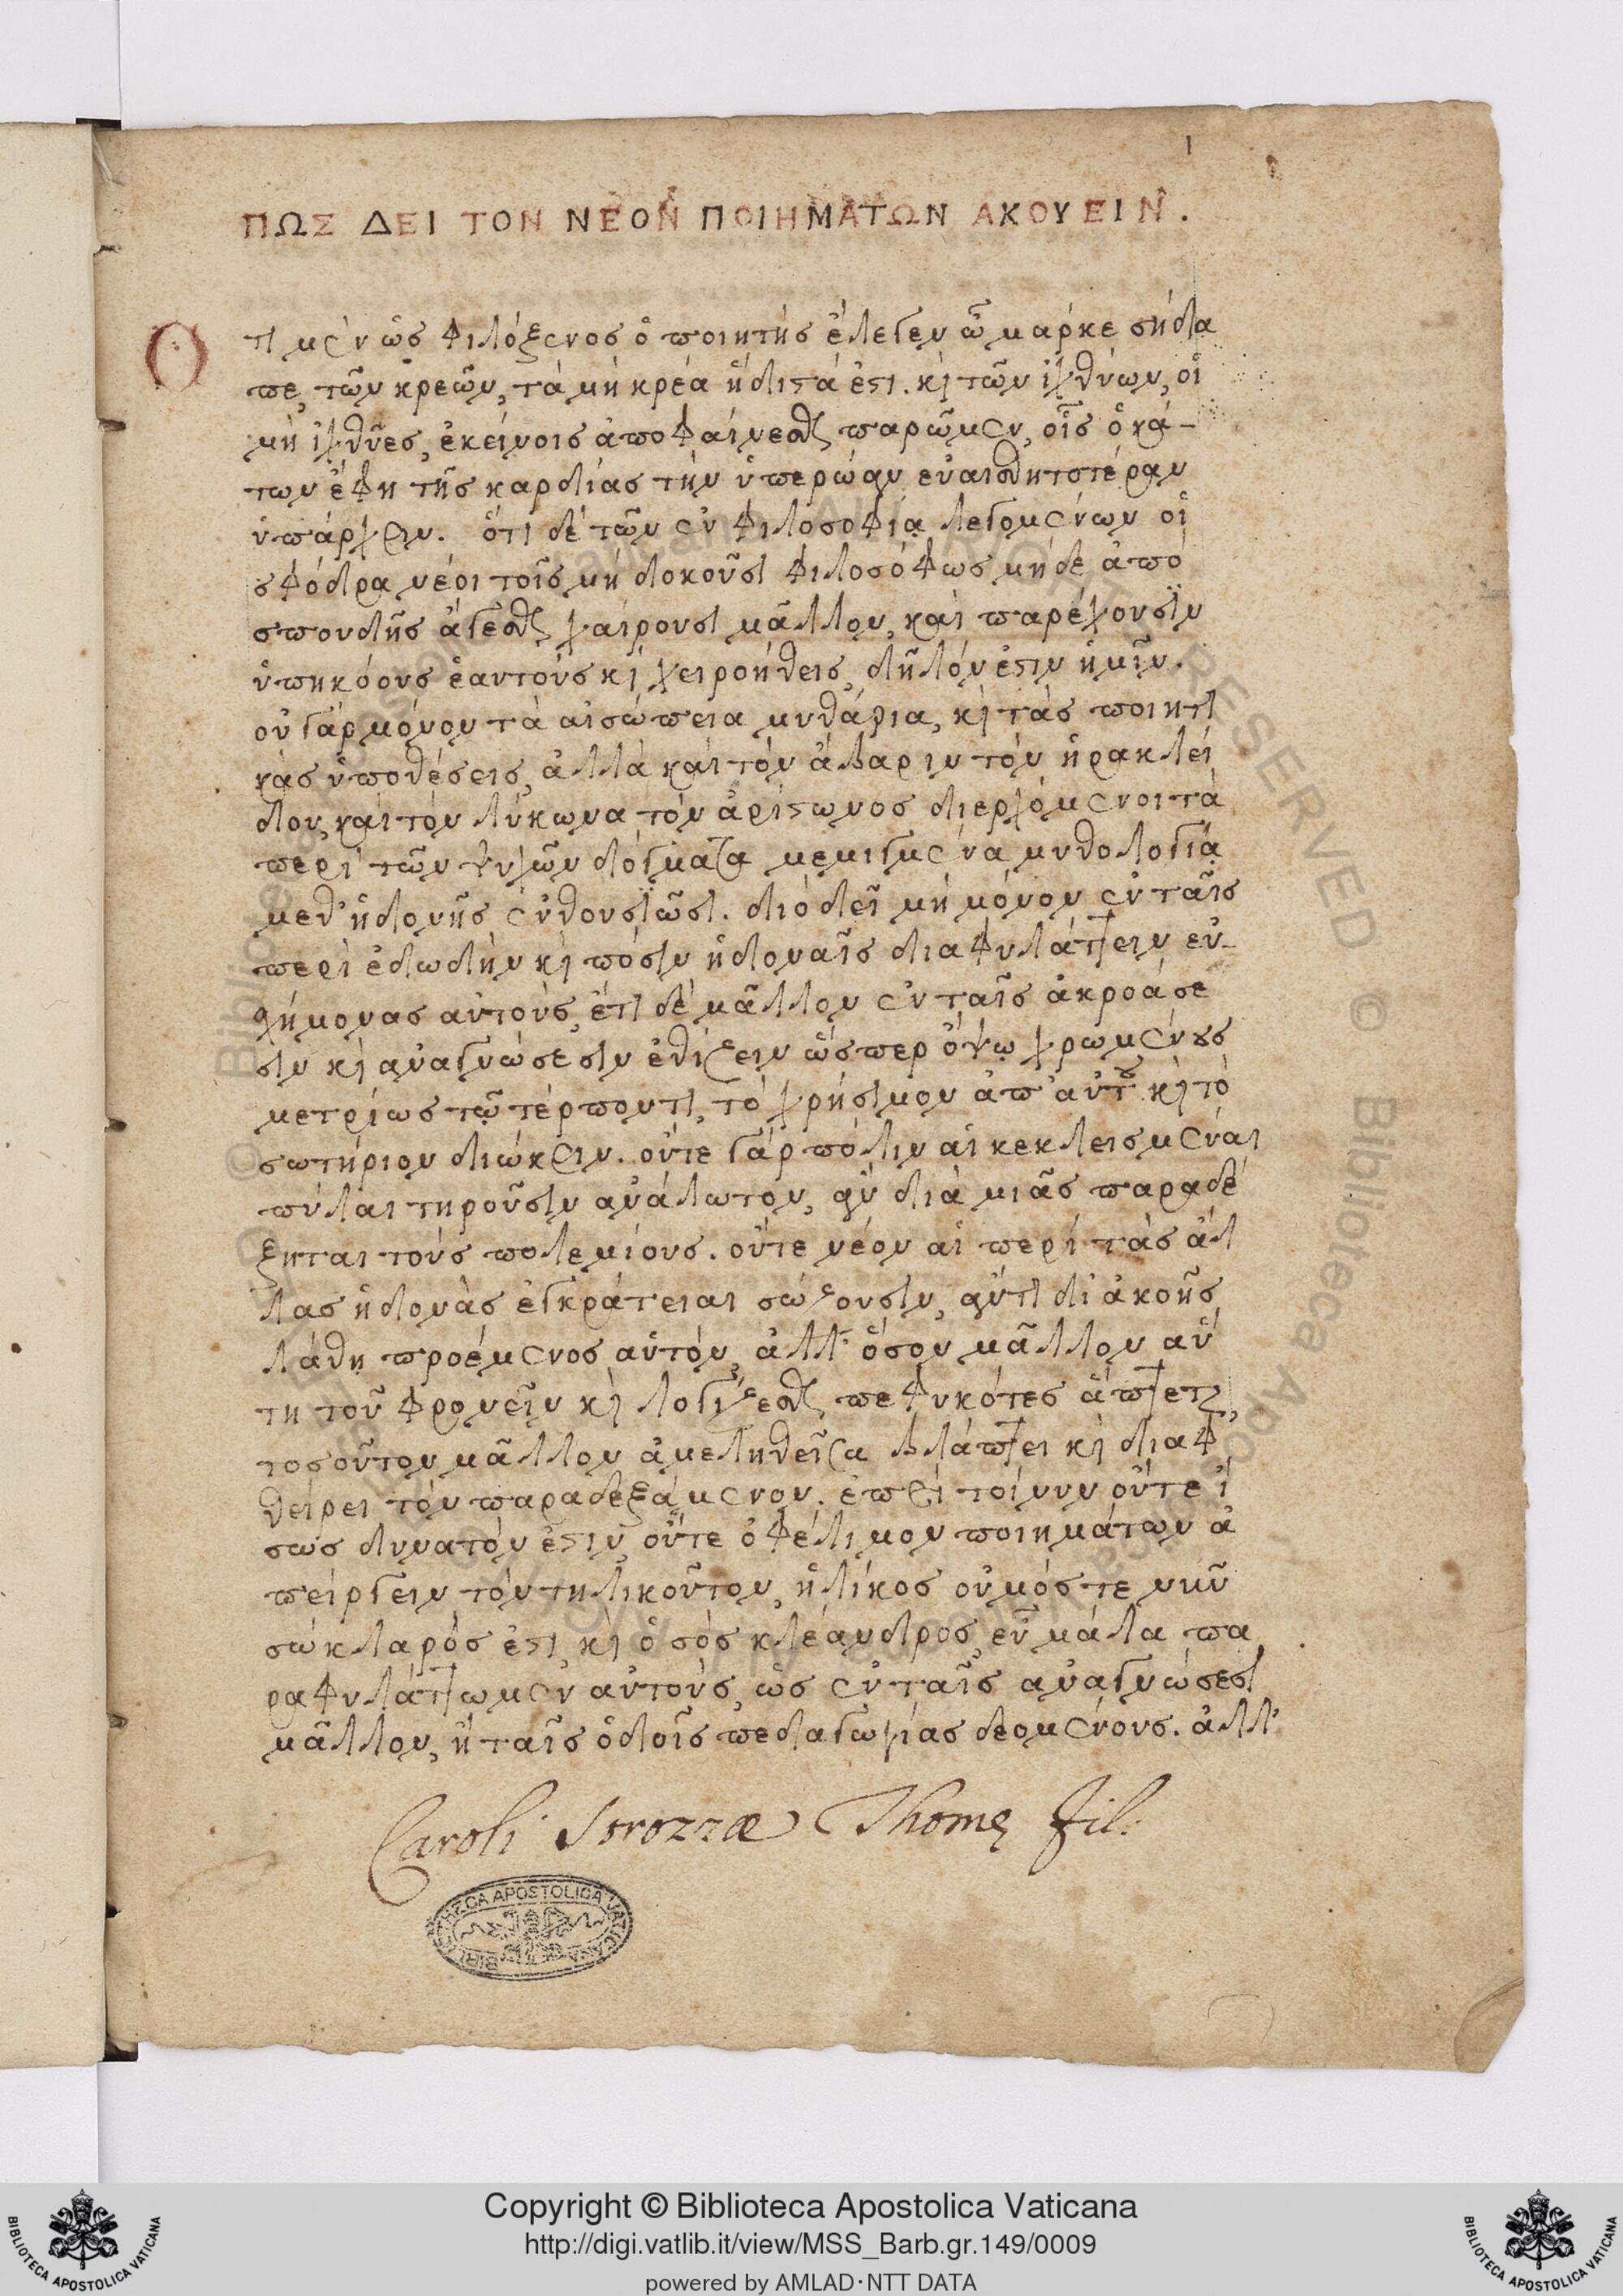 1
ΠΩΣ ΔΕΙ ΤΟΝ ΝΕΟΝ ΠΟΙΗΜΑΤΩΝ ΑΚΟΥΕΙΝ.
Ο
τι μὲν ὡς φιλόξενος ὁ ποιητὴς ἔλεγεν ὦ μάρκε σήδα
πε, τῶν κρεῶν, τὰ μὴ κρέα ἥδιστά ἐστι. κὶ τῶν ἰχθύων, οἱ
μὴ ἰχθῦες, ἐκείνοις ἀποφαίνεσθαι παρῶμεν, οἷς ὁ κά-
των ἔφη τῆς καρδίας τὴν ὑπερώαν εὐαισθητοτέραν
ὑπάρχειν. ὅτι δὲ τῶν ἐν φιλοσοφίᾳ λεγομένων οἱ
σφόδρα νέοι τοῖς μὴ δοκοῦσι φιλοσόφως μηδὲ ἀπὸ
σπουδῆς ἄγεσθαι χαίρουσι μᾶλλον, καὶ παρέχουσιν
ὑπηκόους ἑαυτοὺς κὶ χειροήθεις, δῆλόν ἐστιν ἡμῖν.
οὐ γὰρ μόνον τὰ αἰσώπεια μυθάρια, κὶ τὰς ποιητι
κὰς ὑποθέσεις, ἀλλὰ καὶ τὸν ἄβαριν τὸν ἡρακλεί
δου, καὶ τὸν λύκωνα τὸν ἀρίστωνος διερχόμενοι τὰ
περὶ τῶν ψυχῶν δόγματα μεμιγμένα μυθολογίᾳ
μεθ' ἡδονῆς ἐνθουσιῶσι. διὸ δεῖ μὴ μόνον ἐν ταῖς
περὶ ἐδωδὴν κὶ πόσιν ἡδοναῖς διαφυλάττειν εὐ-
χήμονας αὐτοὺς, ἔτι δὲ μᾶλλον ἐν ταῖς ἀκροάσε
σιν κὶ ἀναγνώσεσιν ἐθίζειν ὥσπερ ὄψῳ χρωμένους
μετρίως τῷ τέρποντι, τὸ χρήσιμον ἀπ' αὐτοῦ κὶ τὸ
σωτήριον διώκειν. οὔτε γὰρ πόλιν αἱ κεκλεισμέναι
πύλαι τηροῦσιν ἀνάλωτον, ἂν διὰ μιᾶς παραδέ
ξηται τοὺς πολεμίους. οὔτε νέον αἱ περὶ τὰς ἄλ
λας ἡδονὰς ἐγκράτειαι σώζουσιν, ἄντι δι' ἀκοῆς
λάθῃ προέμενος αὑτόν, ἀλλ' ὅσον μᾶλλον αὕ
τη τοῦ φρονεῖν κὶ λογίζεσθαι πεφυκότες ἅπτεται,
τοσοῦτον μᾶλλον ἀμεληθεῖσα βλάπτει κὶ διαφ
θείρει τὸν παραδεξάμενον. ἐπεὶ τοίνυν οὔτε ἴ
σως δυνατόν ἐστιν, οὔτε ὀφέλιμον ποιημάτων ἀ
πείργειν τὸν τηλικοῦτον, ἡλίκος οὑμός τε νῦν
σώκλαρός ἐστι, κὶ ὁ σὸς κλέανδρος, εὖ μάλα πα
ραφυλάττωμεν αὐτοὺς, ὡς ἐν ταῖς ἀναγνώσεσι
μᾶλλον, ἢ ταῖς ὁδοῖς πεδαγωγίας δεομένους. ἀλλ'
Caroli Strozzæ Thomę fil:
BIBLIOTHECA APOSTOLICA VATICANA
Copyright © Biblioteca Apostolica Vaticana
http://digi.vatlib.it/view/MSS_Barb.gr.149/0009
powered by AMLAD·NTT DATA
BIBLIOTECA APOSTOLICA VATICANA
BIBLIOTECA APOSTOLICA VATICANA